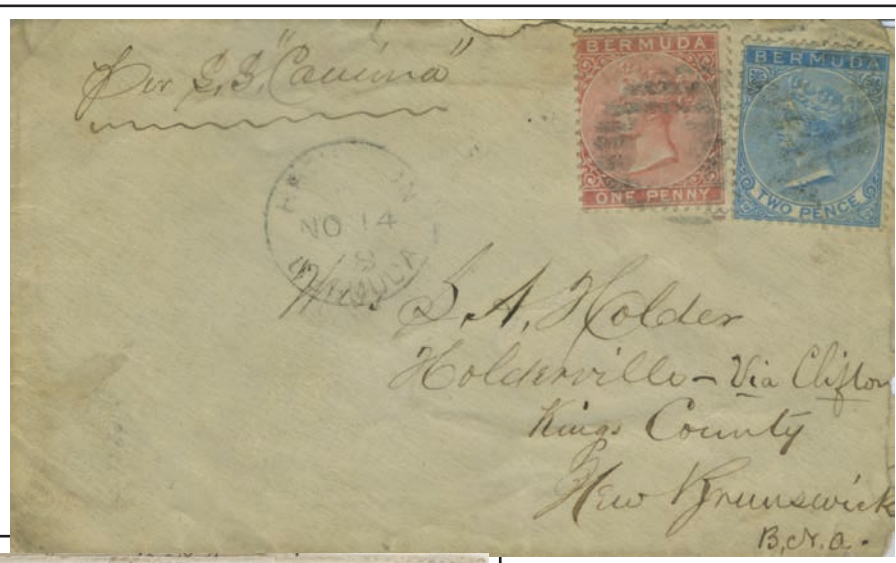 Per S.S. "Canima"
BERMUDA
ONE PENNY
BERMUDA
TWO PENCE
HAMILTON
NO 14
BERMUDA
Miss S. A. Holder
Holderville - Via Clifton
Kings County
New Brunswick
B.N.A.